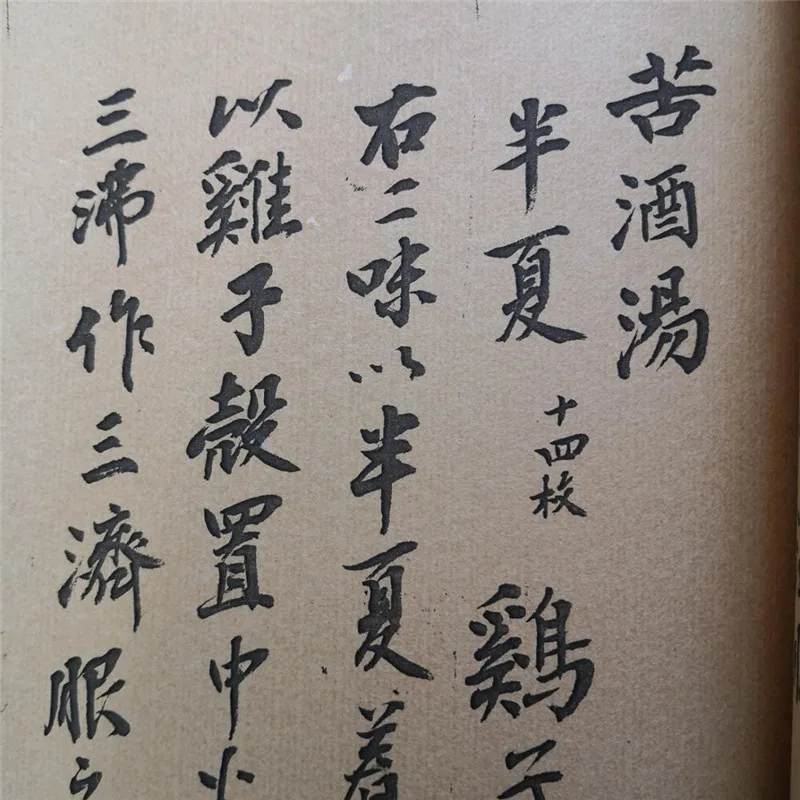 苦酒湯
半夏 十四枚 鷄子
右二味以半夏着
以雞子殼置中火
三沸作三濟服之